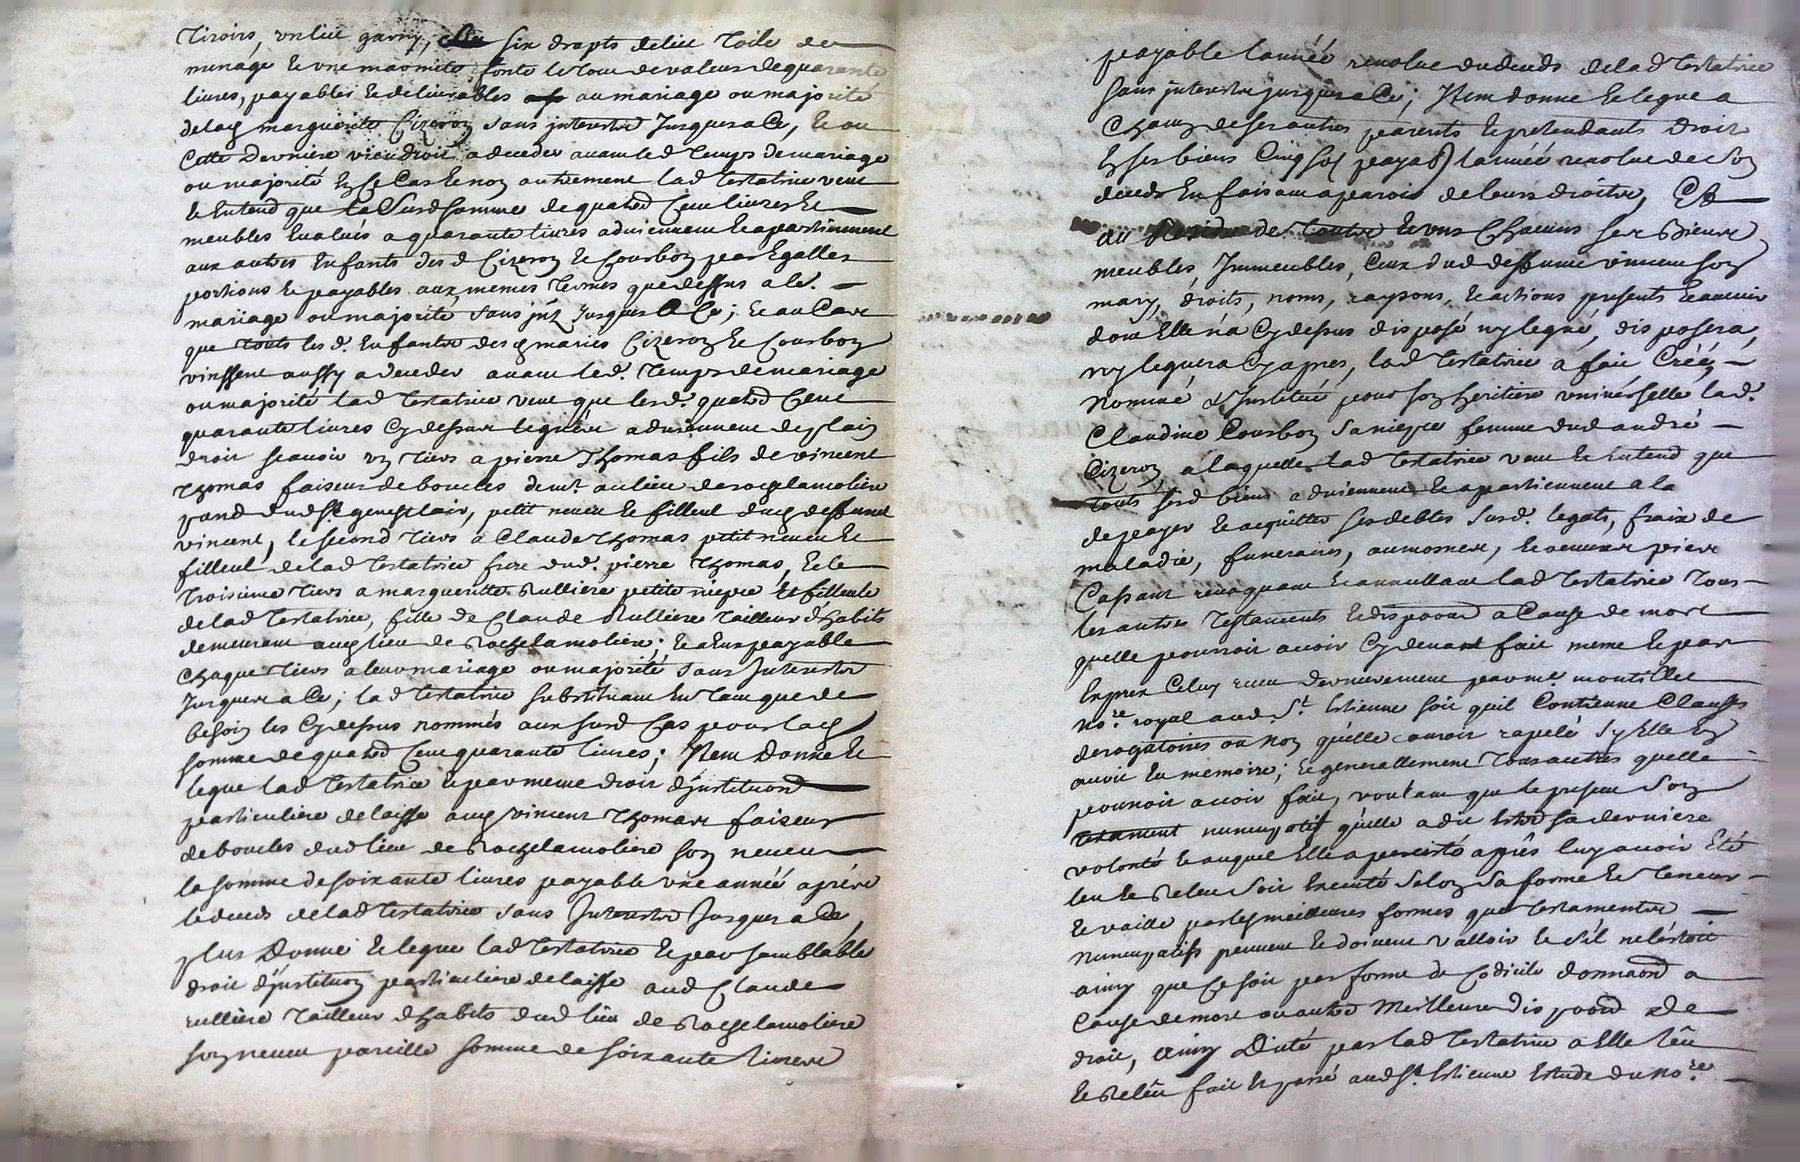 tiroirs, un lict garny, six drapts de lict toile de
menage et une marmitte fonte le tout de valeur de quarante
livres, payables et delivrables au mariage ou majorité
de lad marguerite Cizeron sans interestz jusques a ce, et ou
cette derniere viendroit a deceder avant led temps de mariage
ou majorité en ce cas et non autrement lad testatrice veut
et entend que la susd somme de quatre cent livres et
meubles evalués a quarante livres adviennent et apartiennent
aux autres enfants desd Cizeron et Courbon par egalles
portions et payables aux memes termes que dessus a led.
mariage ou majorité sans jntz jusques a ce; et au cas
que touts lesd. enfants desd maries Cizeron et Courbon
vinssent aussy a deceder avant led. temps de mariage
ou majorité lad testatrice veut que lesd. quatre cent
quarante livres cy dessus leguées adviennent de plain
droit scavoir un tiers a pierre Thomas fils de vincent
Thomas faiseur de boucles demt. au lieu de rochelamoliere
pard dud St genest lair, petit neveu et filleul dud deffunct
vincent, le second tiers a Claude Thomas petit neveu et
filleul de lad testatrice frere dud. pierre Thomas, et le
troisieme tiers a margueritte Rulliere petite niepce et filleule
de lad testatrice, fille de Claude Rulliere tailleur d'habits
demeurant aud lieu de Rochelamoliere; et a eux payable
chaque tiers a leur mariage ou majorité sans interestz
jusques a ce; lad testatrice substituant en tant que de
besoin les cy dessus nommés aux susd cas pour lad
somme de quatre cent quarante livres; Item donne et
legue lad testatrice et par meme droit d'jnstitutiond
particuliere delaisse aud vincent Thomas faiseur
de boucles dud lieu de Rochelamoliere son neveu
la somme de soixante livres payable une année après
le deceds de lad testatrice sans interestz jusques a ce,
plus donne et legue lad testatrice et par semblable
droit d'jnstitution particuliere delaisse aud Claude
rulliere tailleur d'habits dud lieu de Rochelamoliere
son neveu pareille somme de soixante livres
payable l'année revolue du deceds de lad testatrice
sans interestz jusques a ce; Item donne et legue a
chacun de ses autres parents et pretendants droit
en ses biens cinq sol payab l'année revolue de son
deceds en faisant aparoir de leurs droitz, Et
au Reside de toutz et uns chacuns ses biens
meubles, Immeubles, ceux dud deffunct vincent son
mary, droits, noms, raysons, et actions presents et avenir
dont elle n'a cy dessus disposé ny legué, disposera,
ny leguera cy apres, lad testatrice a fait créé,
nommé et Institué pour son heritiere universelle lad.
Claudine Courbon sa niepce femme dud andré
Cizeron, a laquelle lad testatrice veut et entend que
touts sesd biens adviennent et apartiennent a la
de payer et acquitter ses debtes susd. legats, fraix de
maladie, funeraires, aumosnes, et oeuvres pies
Cassant revoquant et annullant lad testatrice tous
les autres testaments et dispoond a cause de mort
quelle pourroit avoir cy devant fait meme et par
exprex celuy receu dernierement par me montillet
nore. royal aud. St. Estienne soit quil contienne clauses
derogatoires ou non qu'elle auroit rapelé sy elle en
avoit eu memoire; et generallement tous autres quelle
pourroit avoir fait, voulant que le present son
testament nuncupatif quelle a dit estre sa derniere
volonté et auquel elle a persisté après luy avoir eté
leu et releu soit executé selon sa forme et teneur
et vaille par les meilleures formes que testamentz
nuncupatifs peuvent et doivent valloir et s'il ne l'estoit
ainy que ce soit par forme de codicile donnaond a
cause de mort ou autre meilleure dispoond de
droit, Ainy Dicté par lad testatrice a elle leu
et releu fait et passé aud St. Estienne estude du nore.